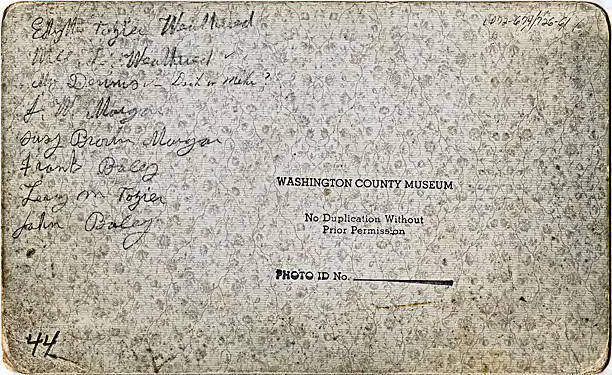 Edyth Tozier Weathred
Mrs. L. Weathred
Dennis - Dick or Mike?
J. W. Morgan
Susy Brown Morgan
Frank Baley
Levy M Tozier
John Baley
WASHINGTON COUNTY MUSEUM
No Duplication Without
Prior Permission
PHOTO ID No.
44